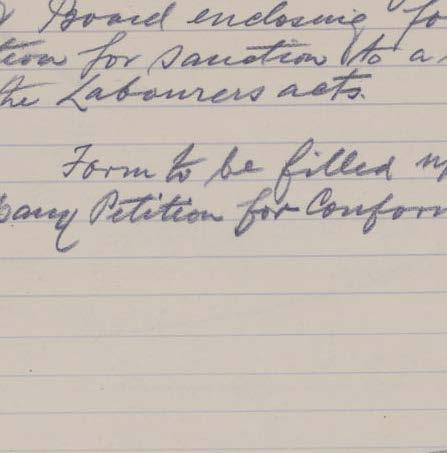 Board enclosing fo
tion for sanction to a
the Labourers acts.
Form to be filled up
pany Petition for Conform